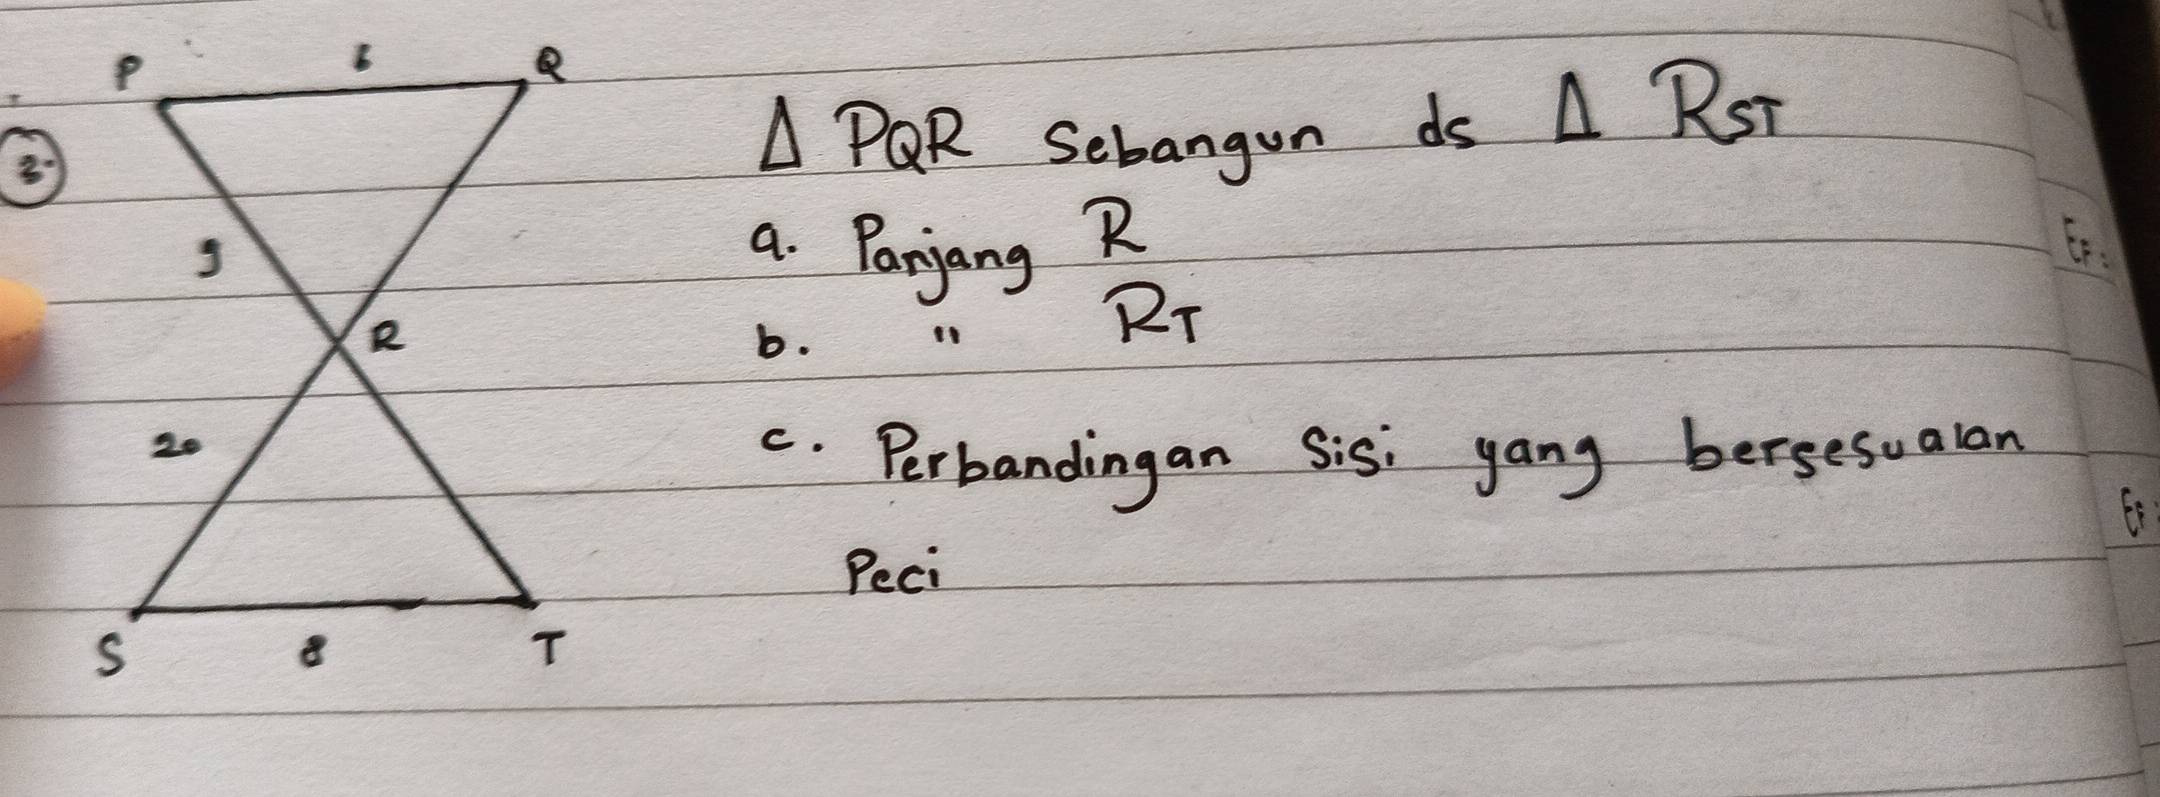 P 6 Q
3.
Δ PQR Sebangun ds Δ RST
9
a. Panjang R
R
b. " RT
20
c. Perbandingan Sisi yang bersesuaian
Peci
S 8 T
EF:
EF: